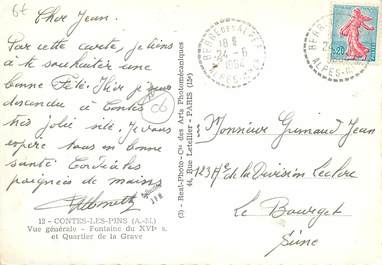 Cher Jean.
Par cette carte, je tiens
à te souhaiter une
bonne Fête. Hier je suis
descendu à Contes
très jolie site. Je vous
espère tous en bonne
santé Cordiales
poignées de mains
12 - CONTES-LES-PINS (A.-M.)
Vue générale - Fontaine du XVIe s.
et Quartier de la Grave
(3) - Real-Photo - Cie des Arts Photomécaniques
44, Rue Letellier - PARIS (15e)
BERRE DES ALPES
18 H
24-6
1964
ALPES-MMES
0,20
Monsieur Grimaud Jean
123 Ave de la Division Leclerc
Le Bourget
Seine